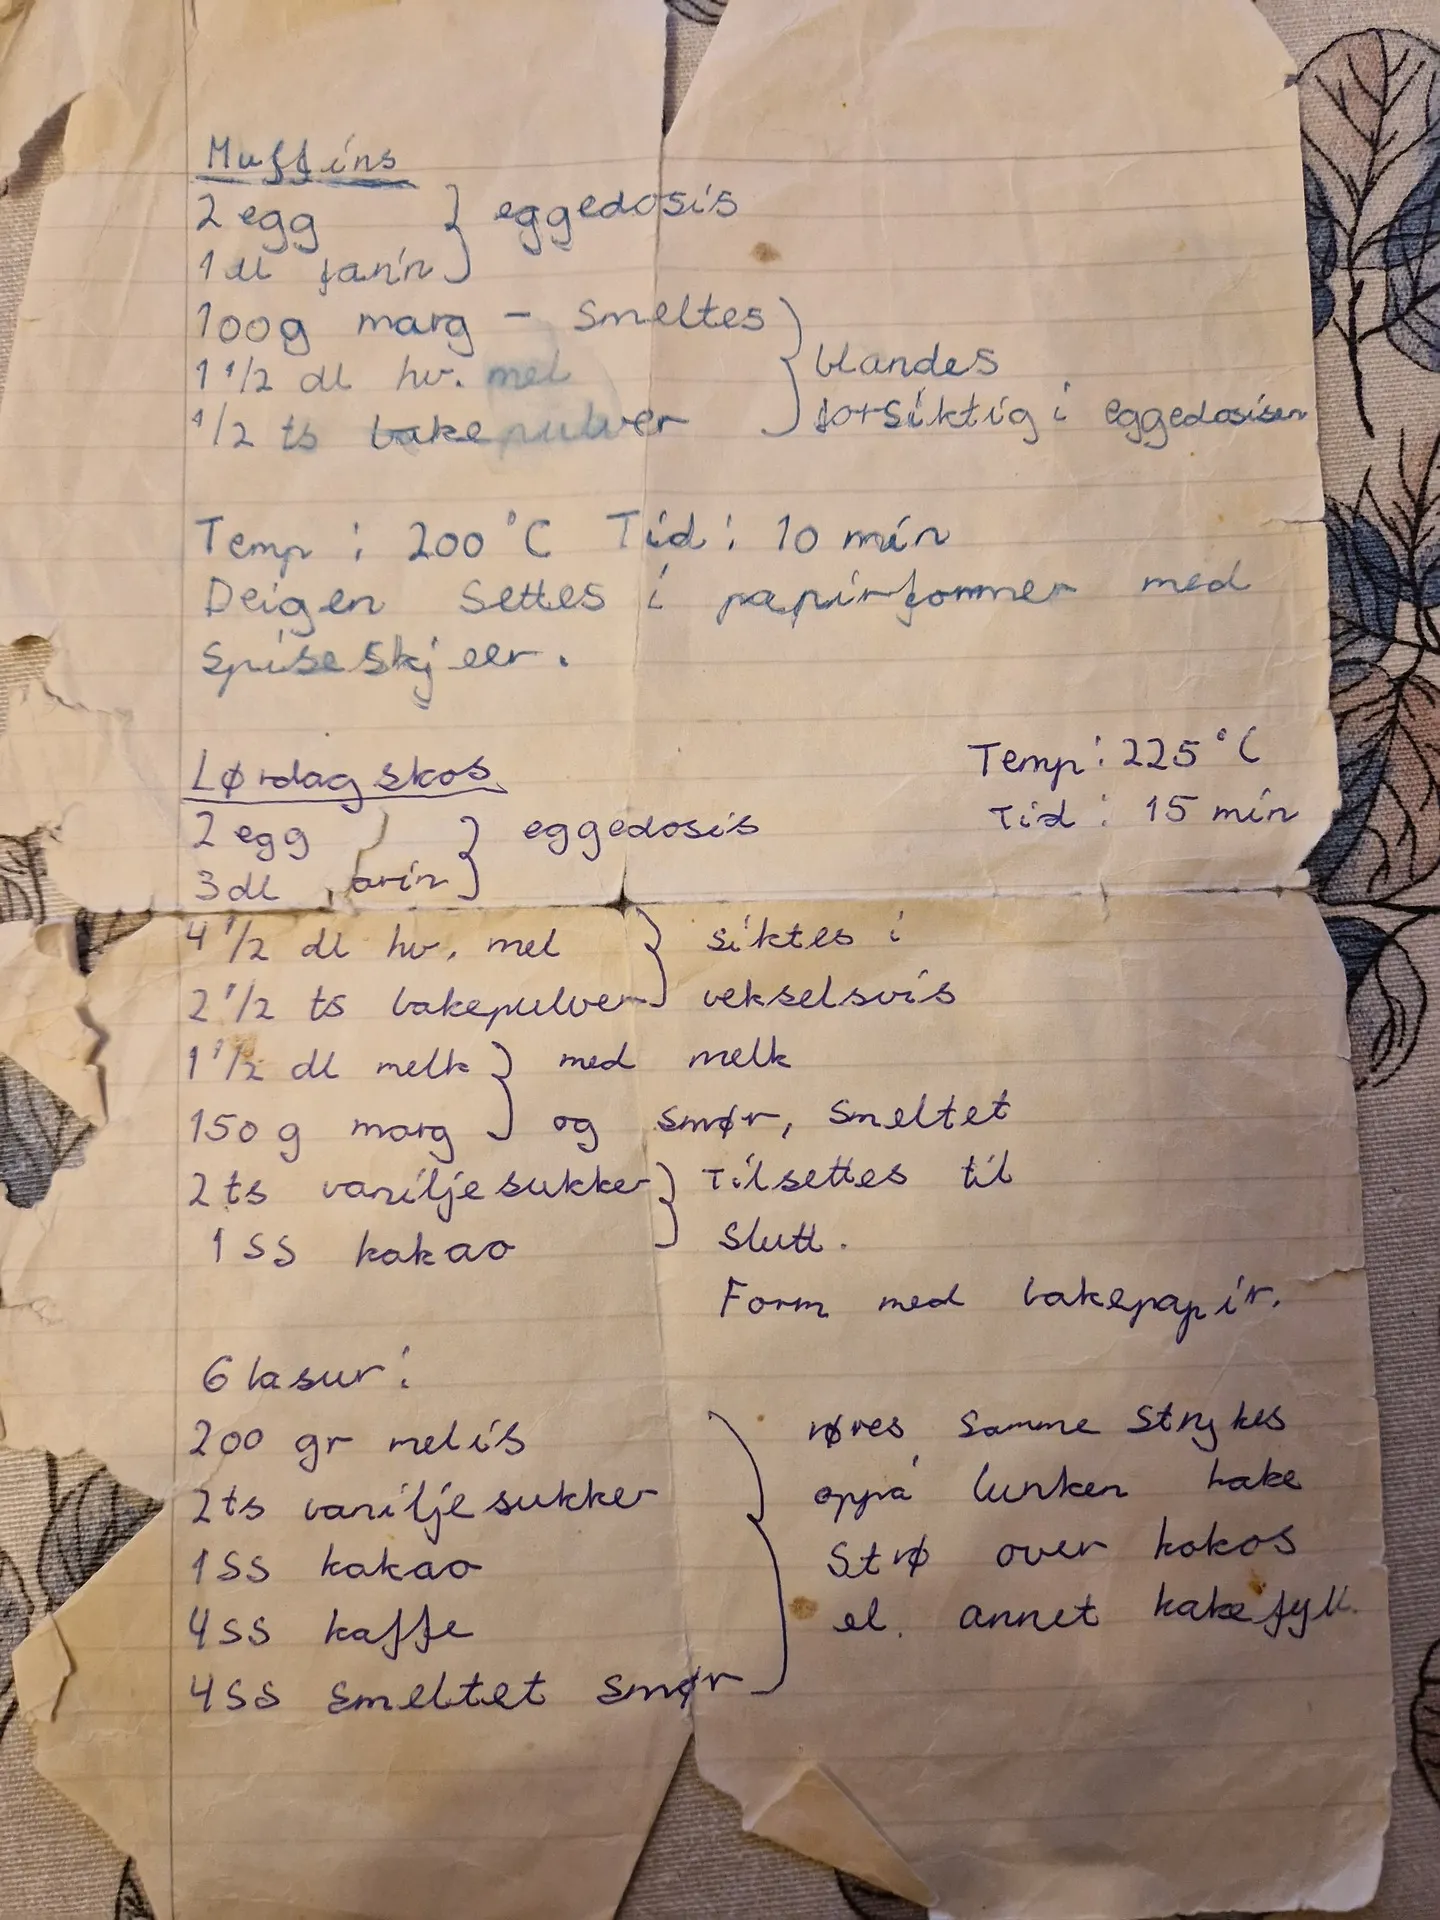 Muffins
2 egg } eggedosis
1 dl farin
100g marg - smeltes
1 1/2 dl hv. mel } blandes
1/2 ts bakepulver forsiktig i eggedosisen
Temp: 200°C Tid: 10 min
Deigen settes i papirformer med
spiseskjeer.
Lørdagskos
Temp: 225°C
Tid: 15 min
2 egg } eggedosis
3 dl farin
4 1/2 dl hv. mel } siktes i
2 1/2 ts bakepulver vekselsvis
1 1/2 dl melk } med melk
150 g marg og smør, smeltet
2 ts vaniljesukker } Tilsettes til
1 ss kakao slutt.
Form med bakepapir.
Glasur:
200 gr melis } røres samme strykes
2 ts vaniljesukker oppå lunken kake
1 ss kakao Strø over kokos
4 ss kaffe el. annet kakefyll.
4 ss smeltet smør